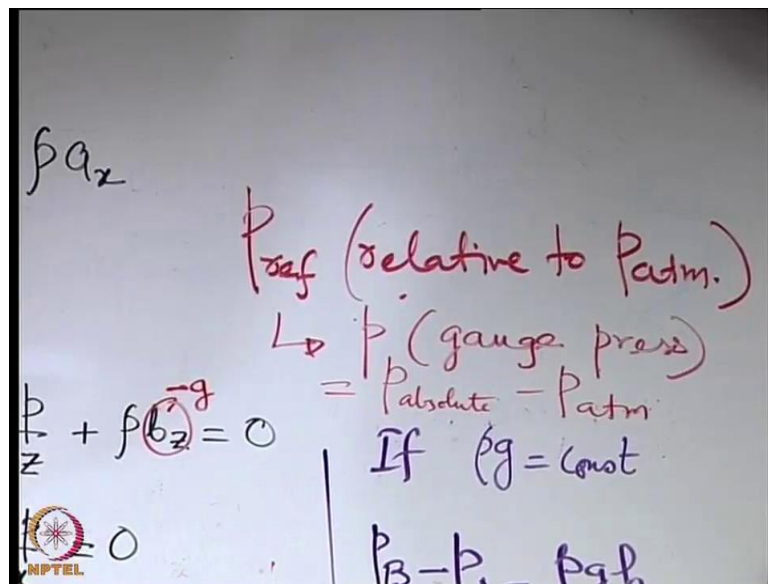 ρa_x
P_ref (relative to P_atm.)
↳ p (gauge press)
= P_absolute - P_atm
-g
p/z + ρb_z = 0
If ρg = const
= 0
P_B - P
NPTEL